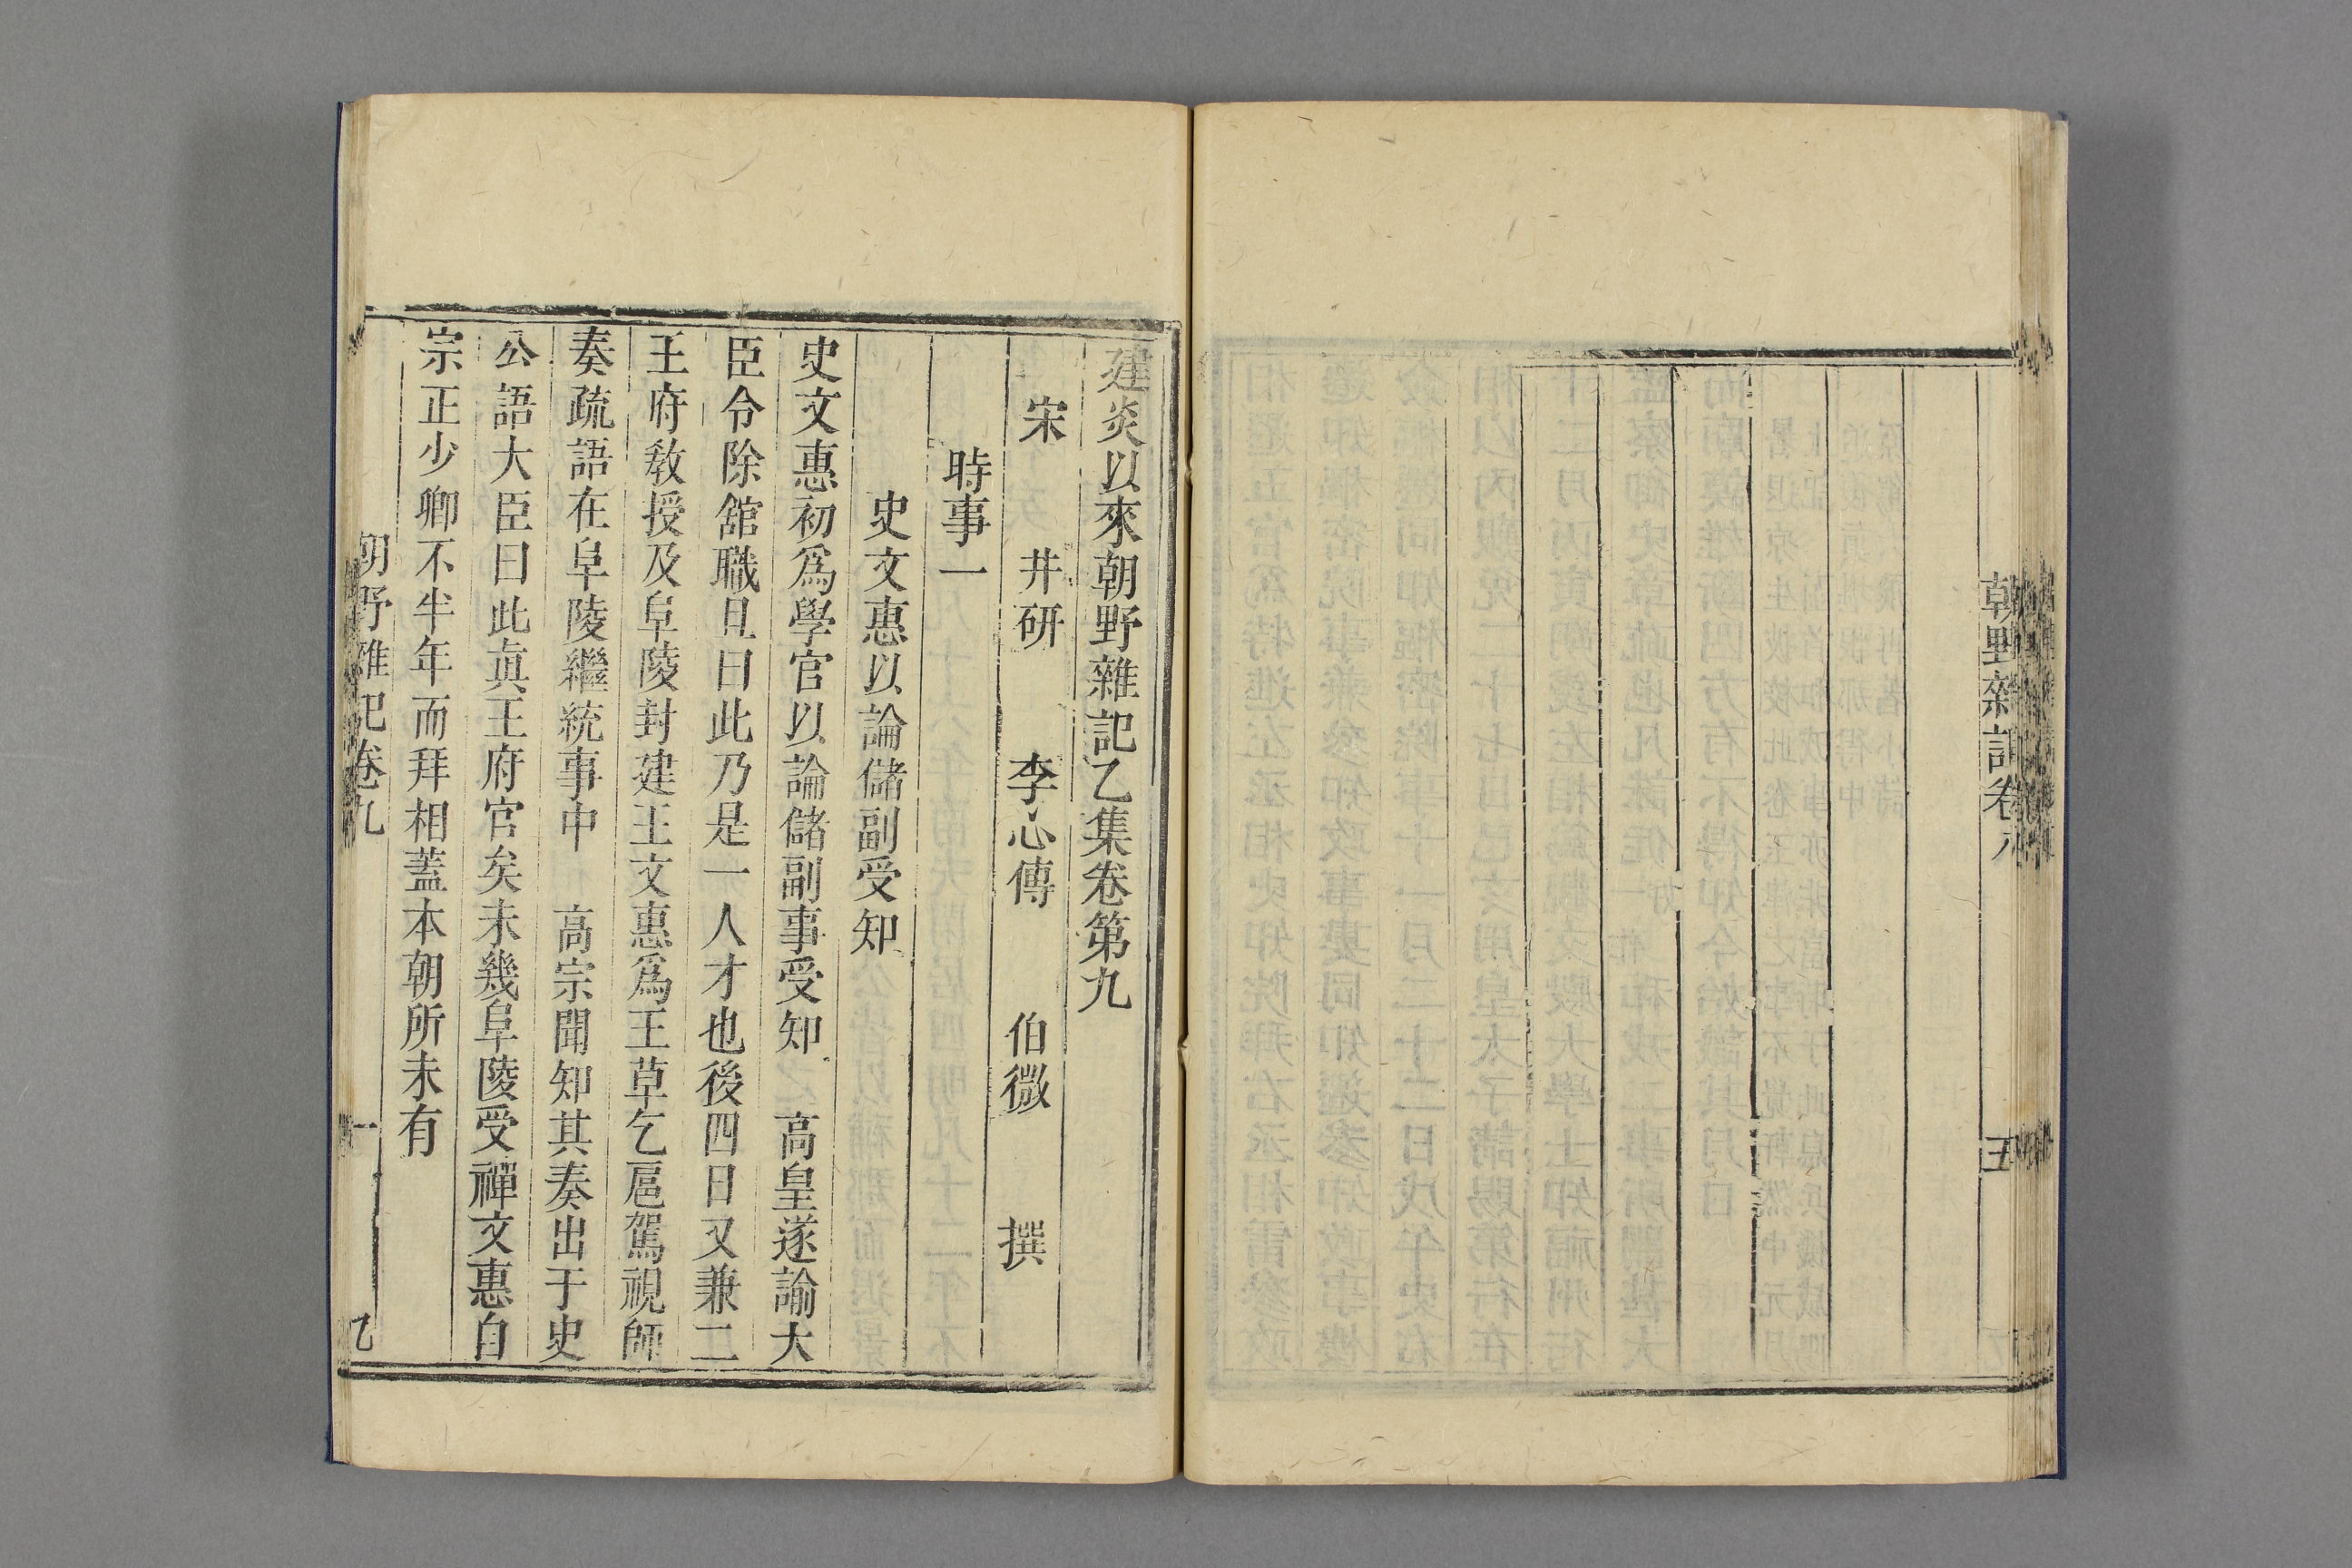 朝野雜記卷八
五
建炎以來朝野雜記乙集卷第九
宋 井研 李心傳 伯微 撰
時事一
史文惠以論儲副受知
史文惠初爲學官以論儲副事受知 高皇遂諭大
臣令除舘職且曰此乃是一人才也後四日又兼二
王府教授及阜陵封建王文惠爲王草乞扈駕視師
奏疏語在阜陵繼統事中 高宗聞知其奏出于史
公語大臣曰此眞王府官矣未幾阜陵受禪文惠自
宗正少卿不半年而拜相蓋本朝所未有
朝野雜記卷九
一
乙